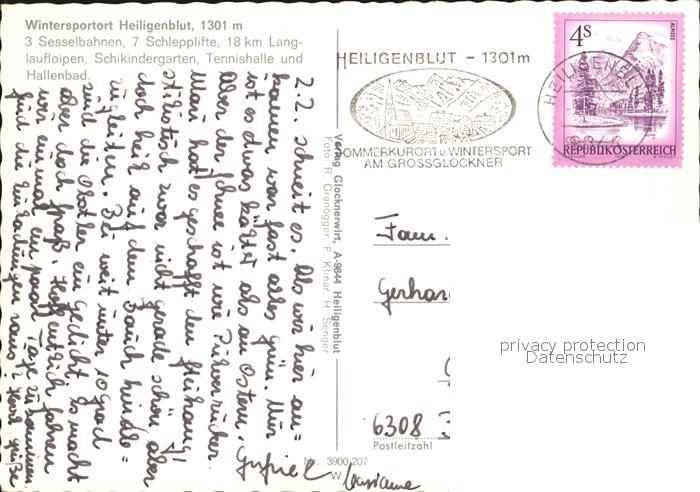 Wintersportort Heiligenblut, 1301 m
3 Sesselbahnen, 7 Schlepplifte, 18 km Lang-
laufloipen, Schikindergarten, Tennishalle und
Hallenbad.
2.2. schneit es. Als wir hier an=
kamen war fast alles grün. Nur
ist es etwas kälter als an Ostern.
Aber der Schnee ist wie Pulverzucker.
Man hat es geschafft den Steilhang,
zwar nicht gerade schön, aber
doch heil auf dem Bauch hinab=
zugleiten. Bei weit unter 10 grad
sind die Obstler ein Gedicht. Es macht
aber doch Spaß. Hoffentlich fahren
wir einmal ein paar Tage zusammen
für die
Marianne
Verlag Glocknerwirt, A-9844 Heiligenblut
Foto: R. Granögger, F. Klinar, H. Senger
Nr. 3900 207
W
HEILIGENBLUT - 1301m
SOMMERKURORT u. WINTERSPORT
AM GROSSGLOCKNER
HEILIGENBL
4S
ALMSEE
REPUBLIK ÖSTERREICH
Fam.
Gerhar
6308
Postleitzahl
privacy protection
Datenschutz